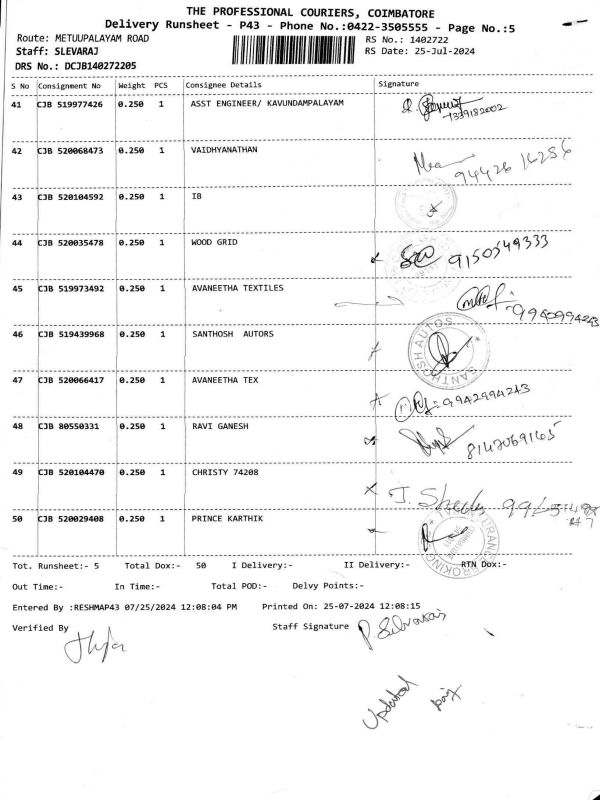 THE PROFESSIONAL COURIERS, COIMBATORE
Delivery Runsheet - P43 - Phone No.:0422-3505555 - Page No.:5
Route: METUUPALAYAM ROAD RS No.: 1402722
Staff: SLEVARAJ RS Date: 25-Jul-2024
DRS No.: DCJB140272205
S No Consignment No Weight PCS Consignee Details Signature
41 CJB 519977426 0.250 1 ASST ENGINEER/ KAVUNDAMPALAYAM
7339182002
42 CJB 520068473 0.250 1 VAIDHYANATHAN
94426 14256
43 CJB 520104592 0.250 1 IB
44 CJB 520035478 0.250 1 WOOD GRID
9150549333
45 CJB 519973492 0.250 1 AVANEETHA TEXTILES
46 CJB 519439968 0.250 1 SANTHOSH  AUTORS
SANTHOSH AUTOS
47 CJB 520066417 0.250 1 AVANEETHA TEX
9942994243
48 CJB 80550331 0.250 1 RAVI GANESH
49 CJB 520104470 0.250 1 CHRISTY 74208
50 CJB 520029408 0.250 1 PRINCE KARTHIK
Tot. Runsheet:- 5 Total Dox:- 50 I Delivery:- II Delivery:- RTN Dox:-
Out Time:- In Time:- Total POD:- Delvy Points:-
Entered By :RESHMAP43 07/25/2024 12:08:04 PM Printed On: 25-07-2024 12:08:15
Verified By Staff Signature
Updated